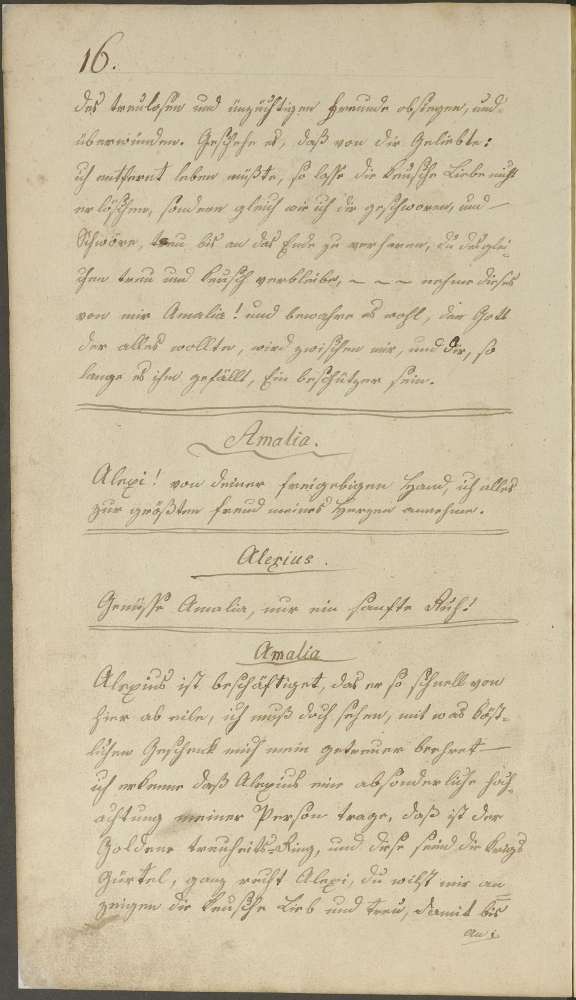 16.
des treulosen und unzüchtigen Freunde obsiegen, und
überwunden. Geschehe es, daß von dir Geliebte:
ich entfernt leben müßte, so lasse die keusche Liebe nicht
erlöschen, sondern gleich wie ich dir geschworen, und —
Schwöre, treu bis an das Ende zu verharren, du desglei-
chen treu und keusch verbleibe, — — — nehme dieses
von mir Amalia! und bewahre es wohl, der Gott
der alles wollte, wird zwischen mir, und dir, so
lange es ihm gefällt, Ein beschützer sein.
Amalia.
Alexi! von deiner freigebigen Hand, ich alles
zur größten freud meines Herzen annehme.
Alexius.
Genüsse Amalia, nur ein sanfte Ruh!
Amalia
Alexius ist beschäftiget, das er so schnell von
hier ab eile, ich muß doch sehen, mit was köst-
lichen Geschenk mich mein getreuer beehret —
ich erkenne daß Alexius eine absonderliche hoch-
achtung meiner Person trage, daß ist der
Goldene treuheits-Ring, und diese seind die
Gürtel, ganz recht Alexi, du wilst mir an
zeigen die keusche Lieb und treu, damit bis
an